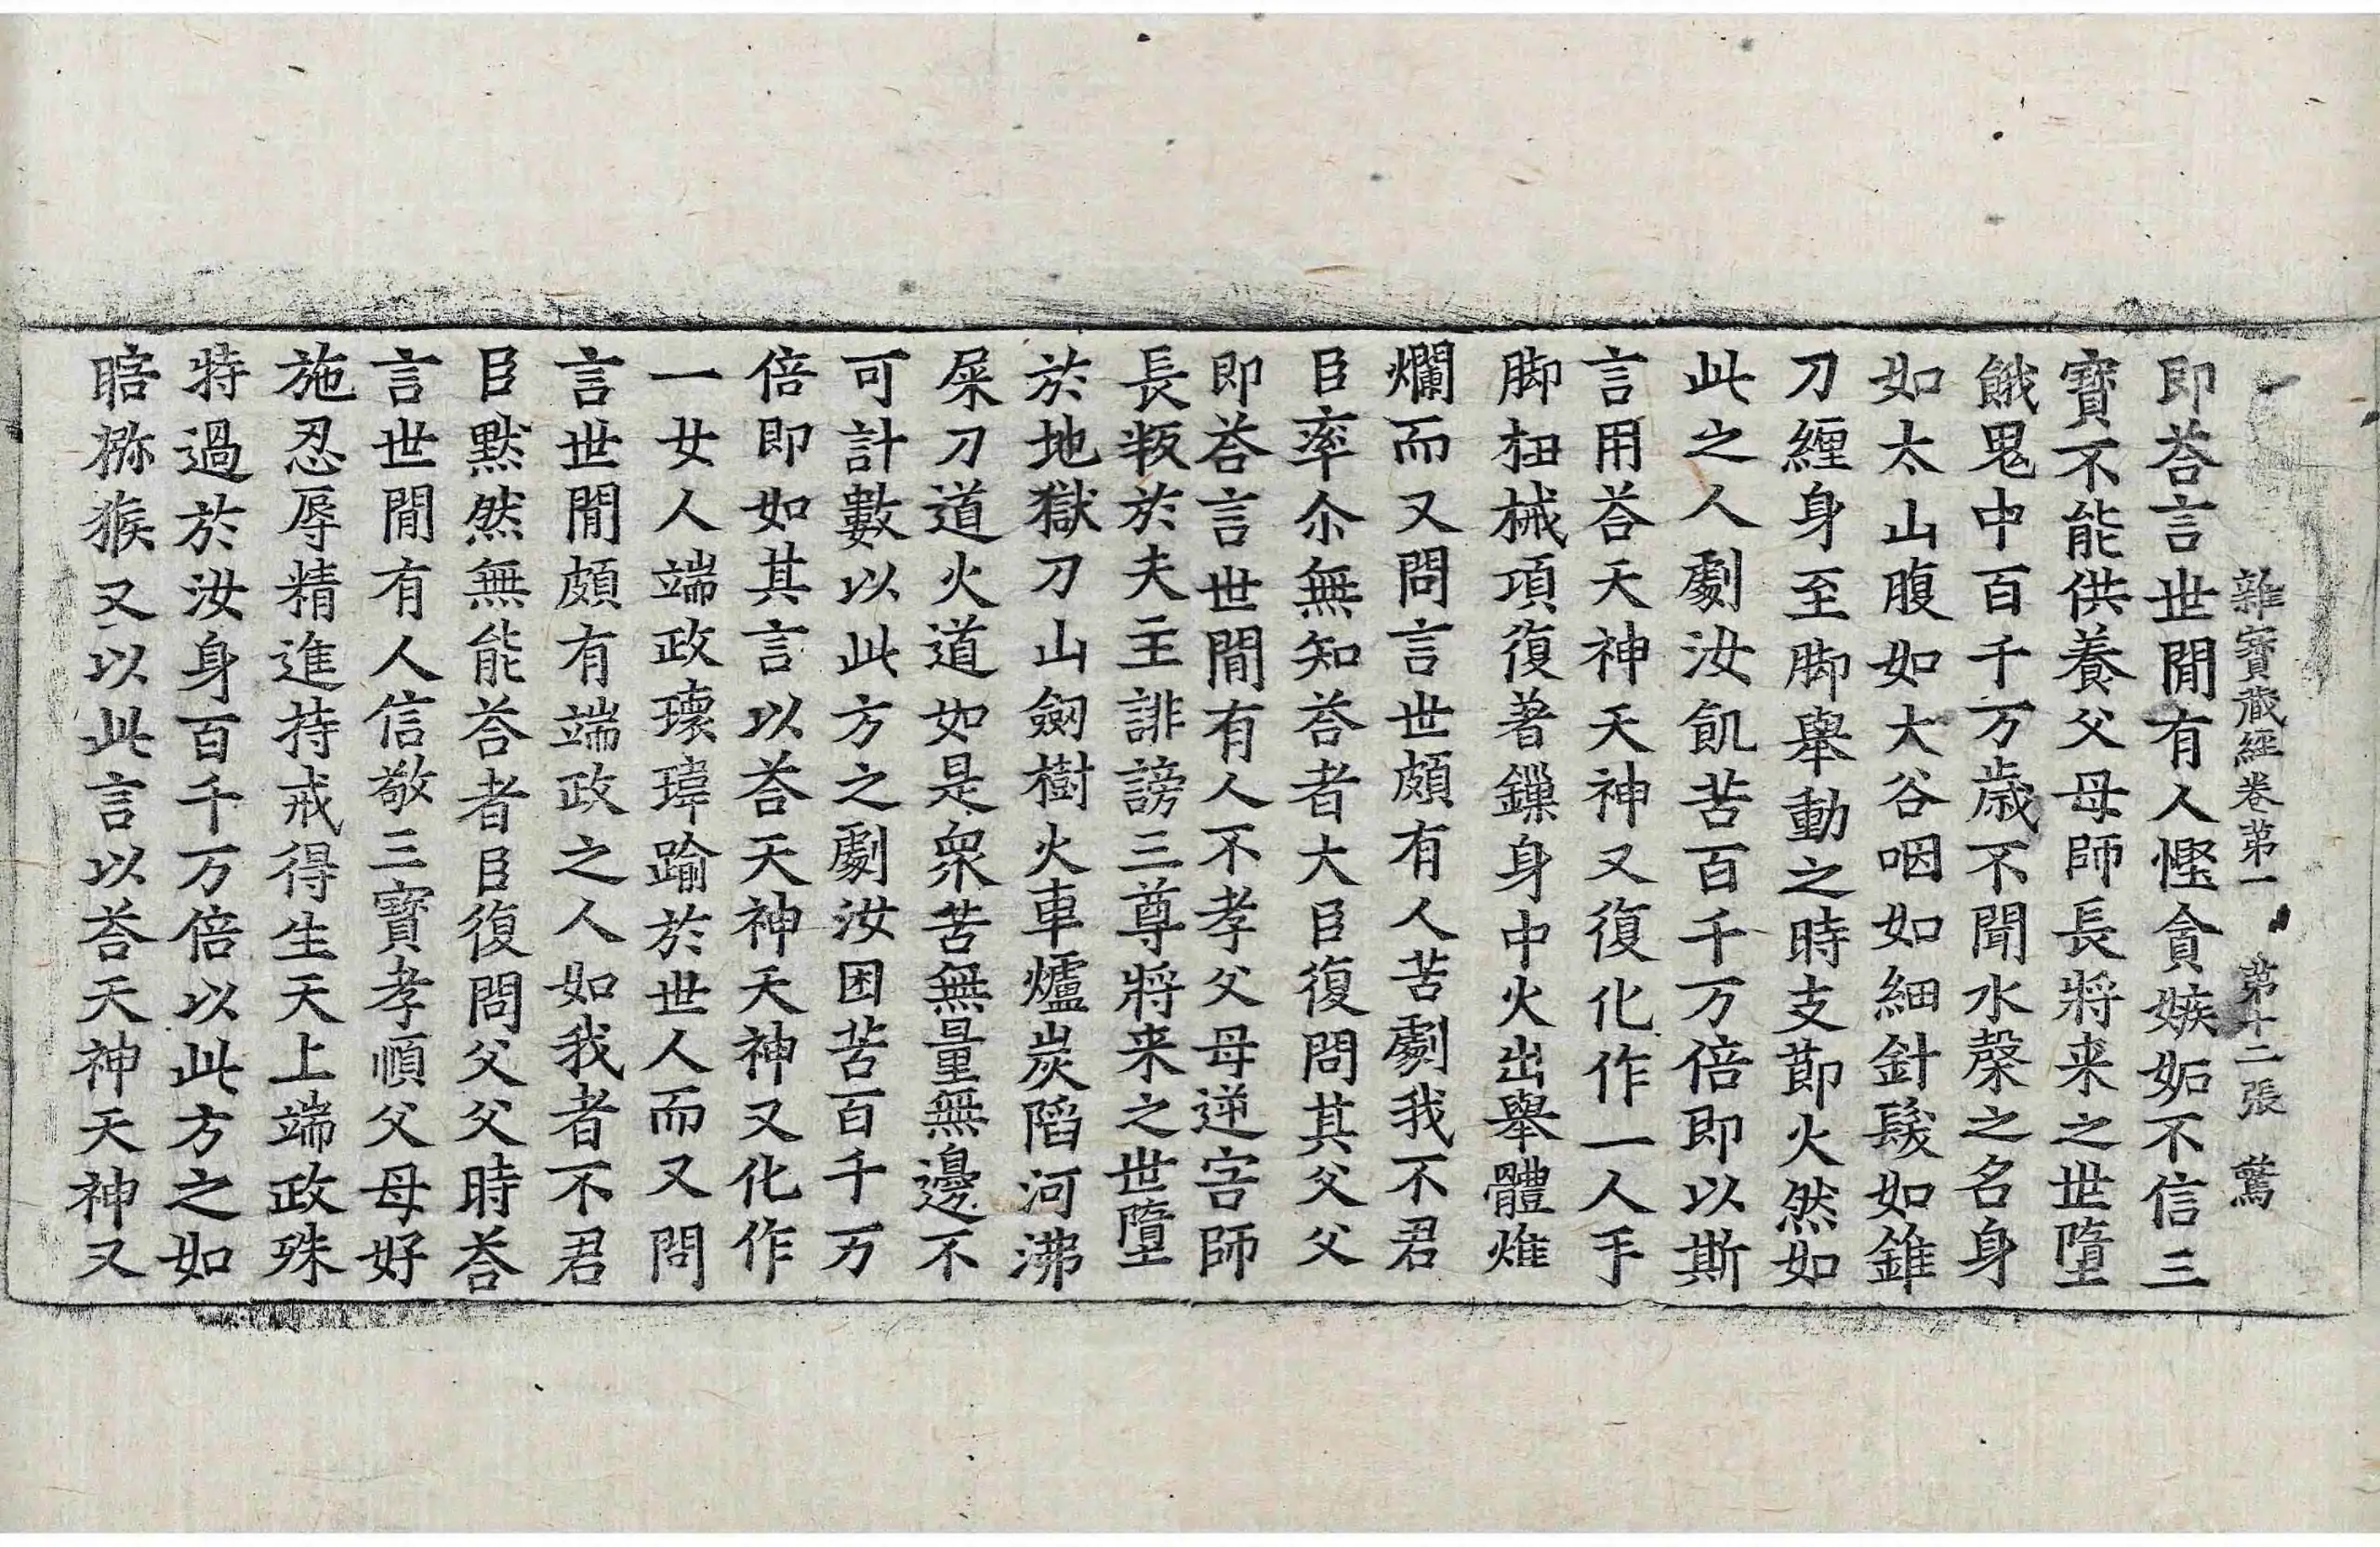 雜寶藏經卷第一　第十二張　鷟
即荅言世閒有人慳貪嫉妬不信三
寶不能供養父母師長將来之世墮
餓鬼中百千万歲不聞水糓之名身
如太山腹如大谷咽如細針髮如錐
刀纏身至脚舉動之時支莭火然如
此之人劇汝飢苦百千万倍即以斯
言用荅天神天神又復化作一人手
脚杻械項復著鏁身中火出舉體燋
爛而又問言世頗有人苦劇我不君
臣率尒無知荅者大臣復問其父父
即荅言世閒有人不孝父母逆害師
長叛於夫主誹謗三尊將来之世墮
於地獄刀山劒樹火車爐炭陷河沸
屎刀道火道如是衆苦無量無邊不
可計數以此方之劇汝困苦百千万
倍即如其言以荅天神天神又化作
一女人端政瓌瑋踰於世人而又問
言世閒頗有端政之人如我者不君
臣默然無能荅者臣復問父父時荅
言世閒有人信敬三寶孝順父母好
施忍辱精進持戒得生天上端政殊
特過於汝身百千万倍以此方之如
瞎猕猴又以此言以荅天神天神又